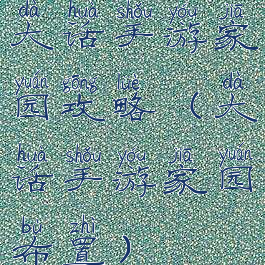 dà huà shǒu yóu jiā
大话手游家
yuán gōng lüè dà
园攻略（大
huà shǒu yóu jiā yuán
话手游家园
bù zhì
布置）